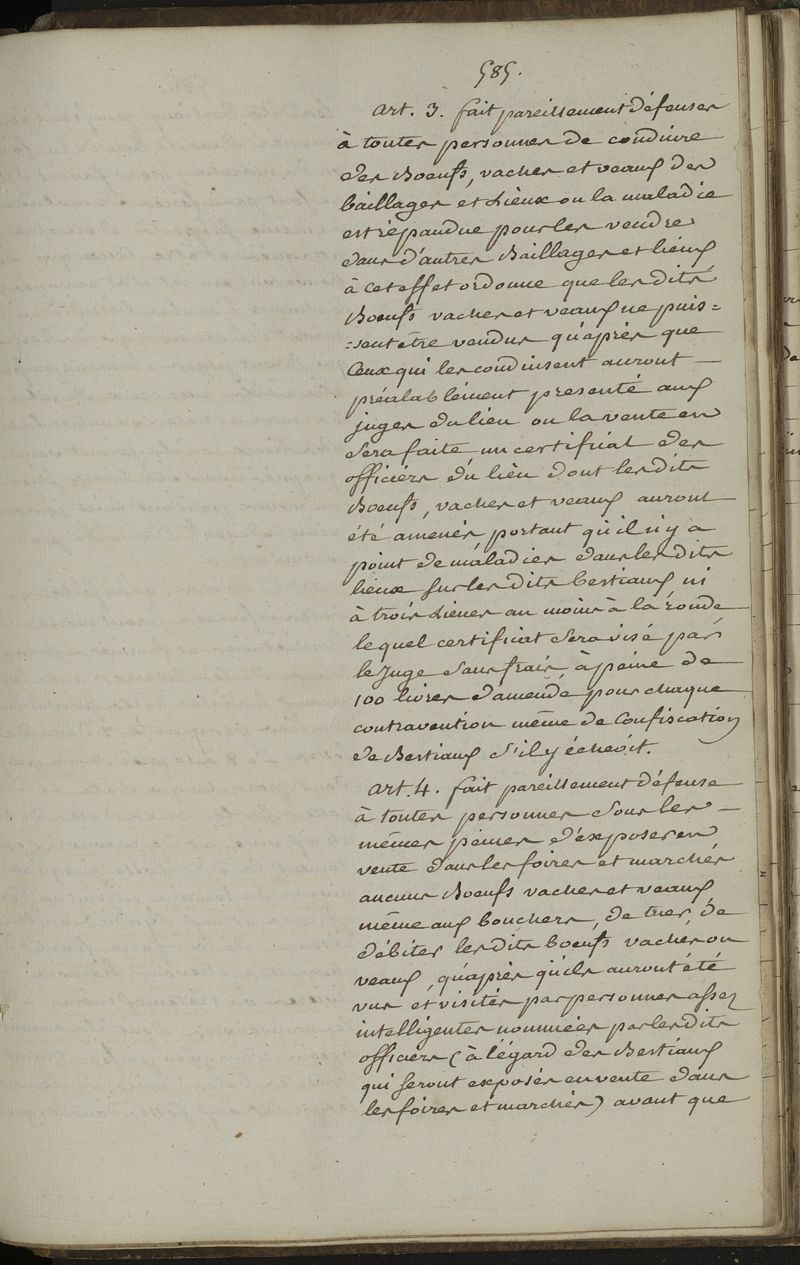 585.
art. 3. fait pareillement défenses
à toutes personnes de conduire
des Boeufs, vaches et veaux des
bâillages et Lieux ou la maladie
est répandue pour les vendre
dans d'autres Baillages et lieux
à cet effet ordonne que lesdits
Boeufs vaches et veaux ne puis=
=sent être vendus qu'après que
Ceux qui les conduisent auront —
préalablement presenté aux
juges du lieu ou la vente en
Sera faite un certificat des
officiers du lieu dont lesdits
Boeufs, vaches et veaux auront
été amenés, portant qu'il n'y a
point de maladies dans lesdits
lieux sur lesdits bestiaux ni
à trois Lieues au moins à la ronde
lequel certificat Sera visé par
le Juge Sans frais, à peine de
100 livres d'amende pour chaque
contravention même de Confiscation
de Bestiaux S'il y écheoit.
art. 4. fait pareillement défense
à toutes personnes Sous les —
mêmes peines d'exposer en
vente dans les foires et marchés
aucuns Boeufs vaches et veaux
même aux bouchers, de tuer, de
débiter lesdits boeufs vaches ou
veaux, qu'après qu'ils auront été
vus et visités par personnes assez
intelligentes nommées par lesdits
officiers (à l'égard des Bestiaux
qui seront exposés en vente dans
les foires et marchés) avant que